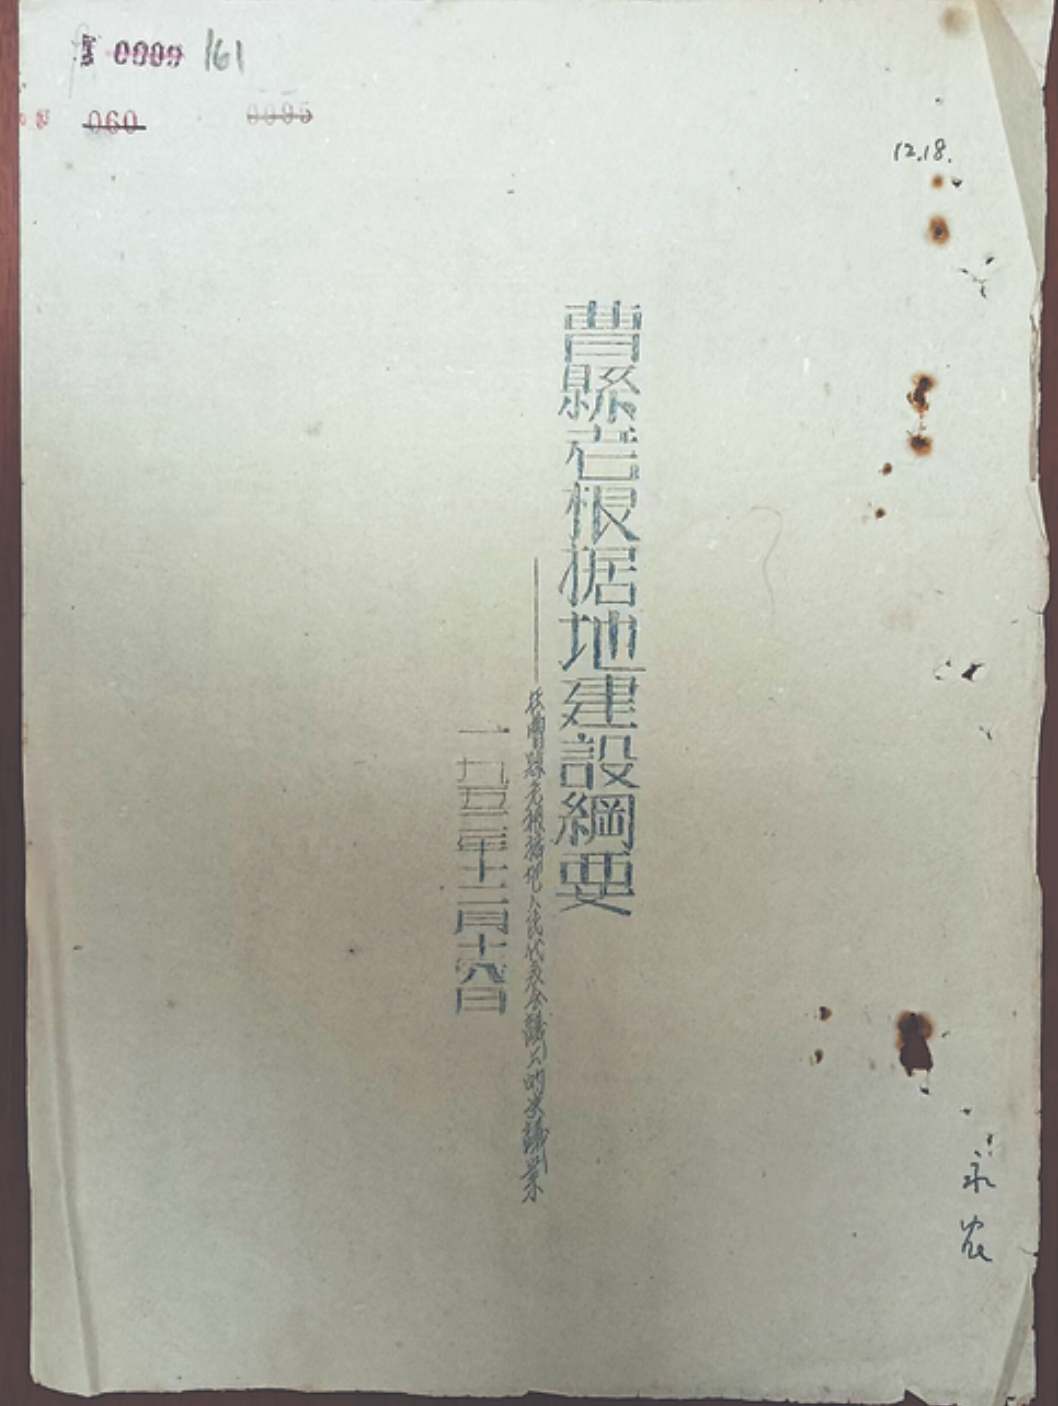 0000 161
060 0095
12.18.
曹縣老根据地建設綱要
曹縣老根據地人民代表会議 的決議草案
一九五二年十二月十八日
永